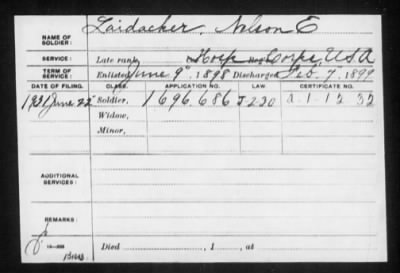 NAME OF SOLDIER: Laidacker, Nelson E
SERVICE: Late rank, Hosp Corps, USA
TERM OF SERVICE: Enlisted June 9" 1898 Discharged Feb. 7" 1899
DATE OF FILING. CLASS. APPLICATION NO. LAW. CERTIFICATE NO.
1931 June 22" Soldier, 1696686 J220 a-1-12-32
Widow,
Minor,
ADDITIONAL SERVICES:
REMARKS:
Died , 1 , at